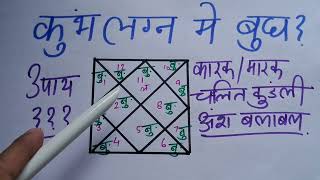 कुंभ लग्न मे बुध?
उपाय
???
कारक/मारक
चलित कुंडली
अंश बलाबल
12
बु
बु
बु
10
बु
1
11
ल
9
बु
2
बु
8
बु
3
बु
4
5
बु
6
बु
7
बु